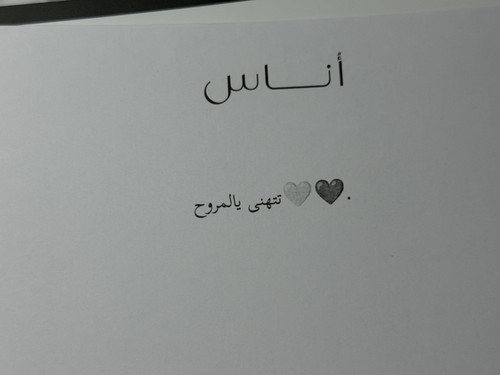 أنـــاس
.🖤🤍تتهنى يالمروح